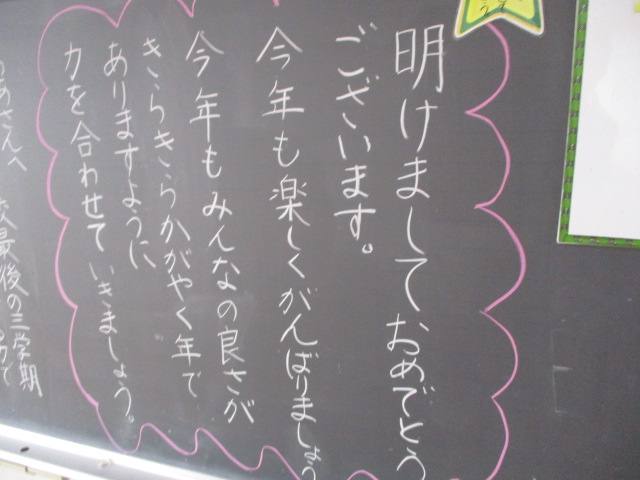 明けましておめでとう
ございます。
今年も楽しくがんばりましょう
今年もみんなの良さが
きらきらかがやく年で
ありますように
力を合わせていきましょう。
最後の三学期
さんへ